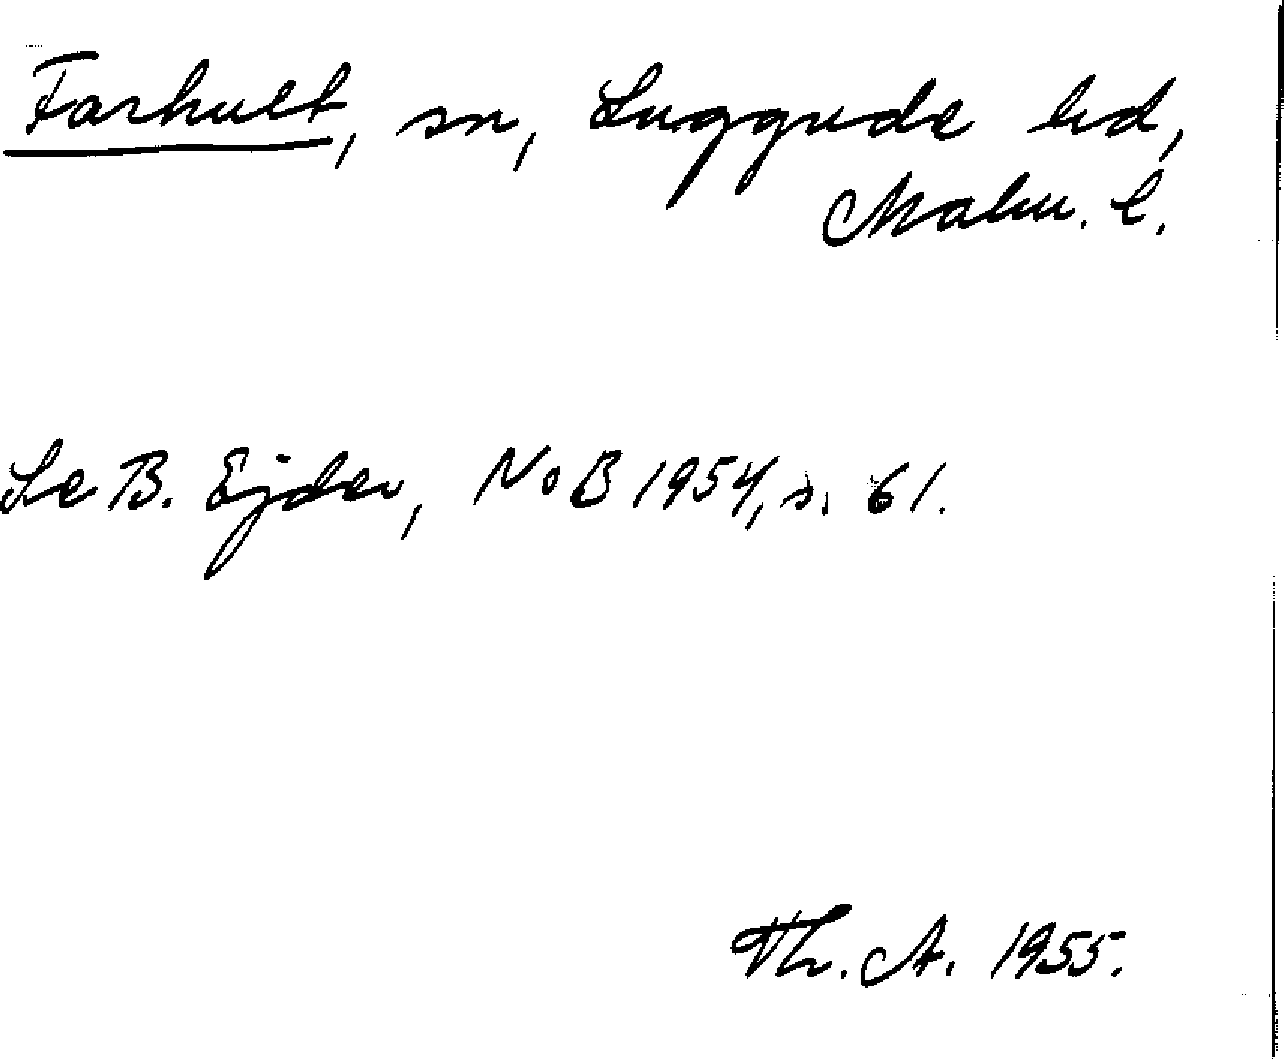 Farhult, sn, Luggude hd,
Malm. l.
Se B. Ejder, NoB 1954, s. 61.
Th. A. 1955.